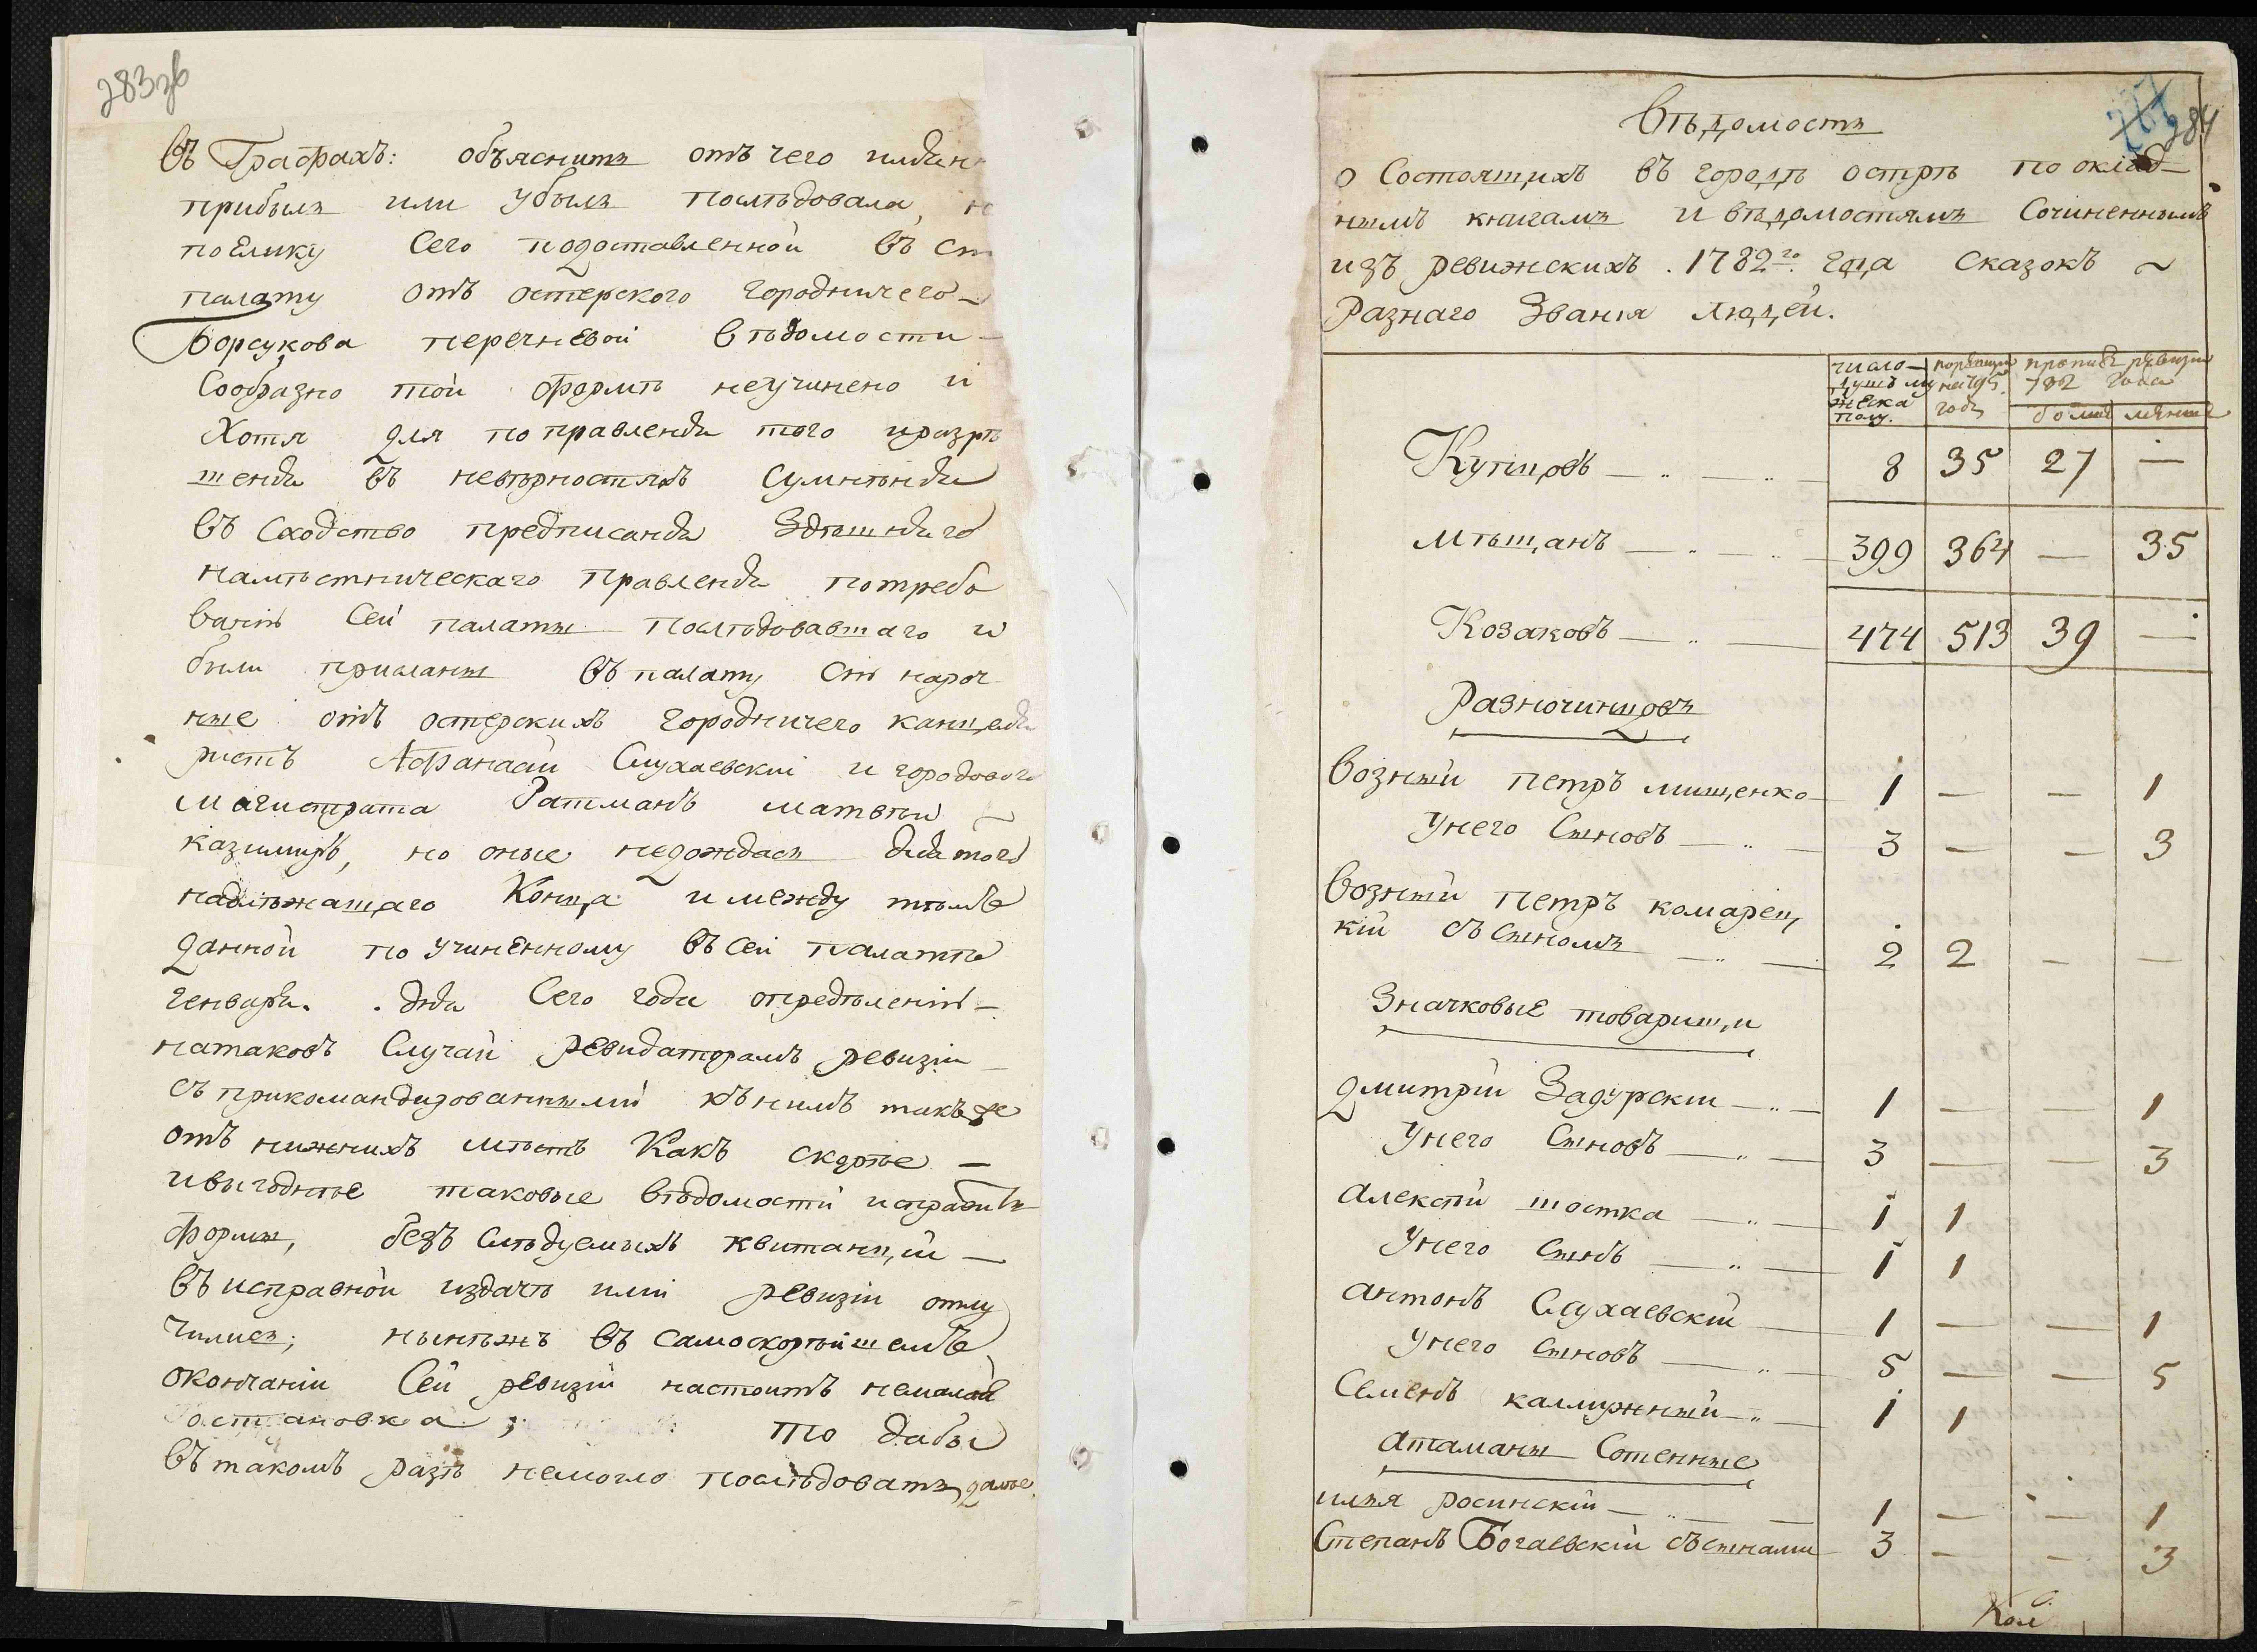 283зв
въ Графахъ: объяснить отъ чего
прибыль или убыль последовала,
поелику Сего подоставленной въ
палату отъ остерского городничего
Борсукова перечневой ведомости
Сообразно той форме неучинено и
Хотя для поправления того иразре
шения въ неверностяхъ Сумнения
въ Сходство предписания Здешняго
наместническаго правления потребо
ванию Сей палаты последовавшаго и
были присланы въ палату нароч
ные отъ остерскихъ городничего канцеля
ристъ Афанасий Слухаевский и городового
магистрата Ратманъ матвей
казимиръ, но оные недождась для того
надлежащаго Конца и между темъ
данной по учиненному въ сей палате
генваря. . дня Сего года определению
натаковъ Случай ревидаторамъ ревизіи
съ прикомандированными къ нимъ такъже
отъ нижнихъ местъ Какъ скорее
ивыгоднее таковые ведомости исправить
формы, безъ Следуемыхъ квитанцій
въ исправной издаче ими ревизіи отлу
чились; нынежъ въ самоскорейшемъ
окончаніи Сей ревизіи настоитъ немалая
остановка; то дабы
въ такомъ разе немогло последовать далее
284
Ведомость
о Состоящихъ въ городе остре по оклад
нымъ книгамъ и ведомостямъ Сочиненнымъ
изъ ревижскихъ. 1782го. года сказокъ
Разнаго Званія людей.
число душъ мужеска полу. по ревизіи на 795 годъ противъ ревизіи 782 года
больше меньше
Купцовъ 8 35 27 —
мещанъ 399 364 — 35
Козаковъ 474 513 39 —
Разночинцовъ
Возный петръ мищенко 1 — — 1
Унего Сыновъ 3 — — 3
Возный петръ комарец
кій съ Сыномъ 2 2 — —
Значковые товарищи
Дмитрій Задурскій 1 — — 1
Унего Сыновъ 3 — — 3
Алексей шостка 1 1
Унего Сынъ 1 1
Антонъ Слухаевскій 1 — — 1
Унего Сыновъ 5 — — 5
Семенъ калюжный 1 1
Атаманы Сотенные
илья росинскій 1 — — 1
Степанъ Богаевскій съ сынами 3 — — 3
Кол